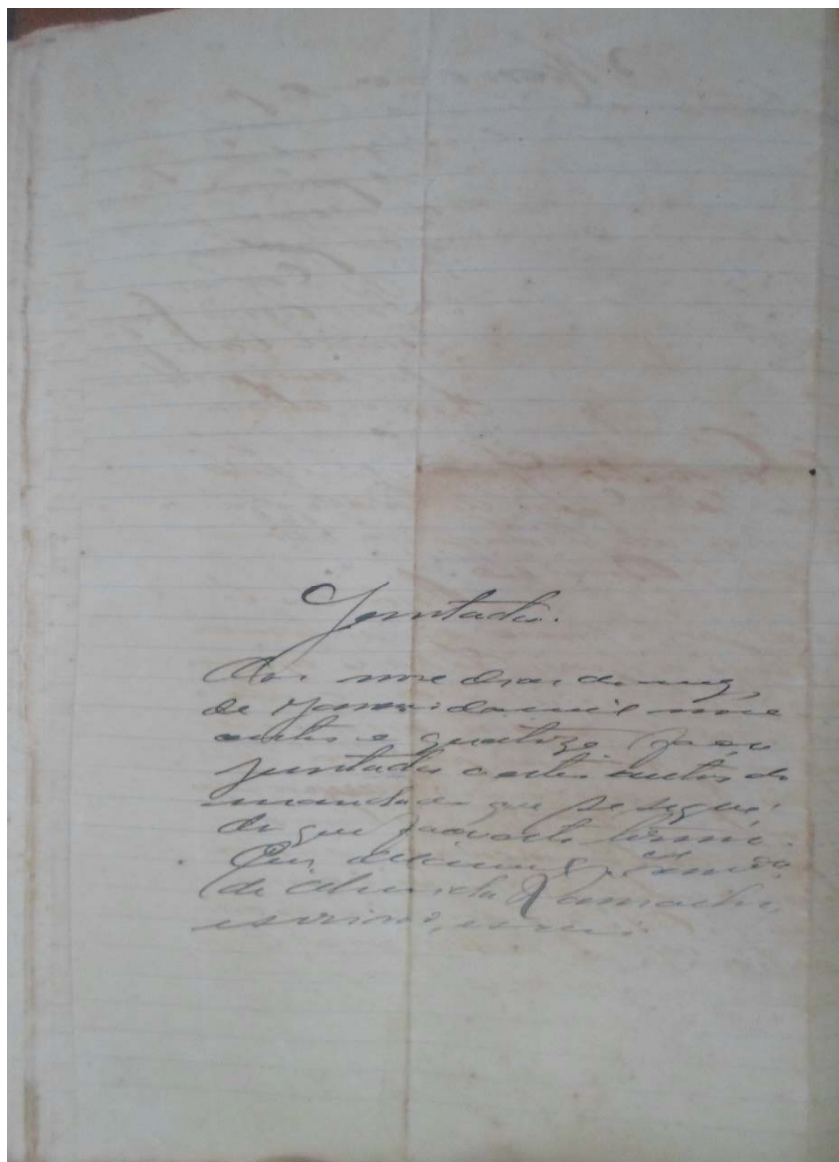 Juntada.
Aos nove dias do mez
de Janeiro de mil nove
centos e quatorze faço
juntada a estes autos do
mandado que se segue;
do que faço este termo.
Eu,
de Almeida Ramalho,
escrivão, escrevi.